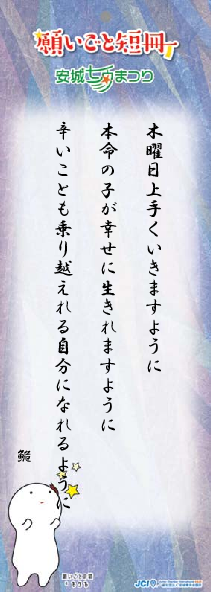 願いごと短冊
安城七夕まつり
木曜日上手くいきますように
本命の子が幸せに生きれますように
辛いことも乗り越えれる自分になれるように
願いごと短冊
JCI